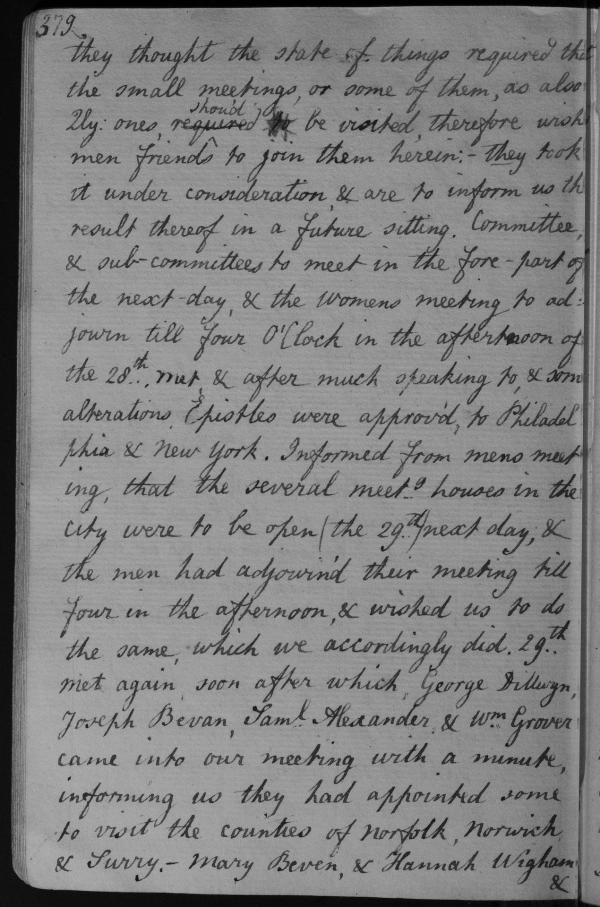 379.
they thought the state of things required that
the small meetings, or some of them, as also
Qly: ones, required shou'd be visited, therefore wish
men friends to join them herein:- they took
it under consideration, & are to inform us th
result thereof in a future sitting. Committee,
& sub-committees to meet in the fore-part of
the next day, & the womens meeting to ad=
journ till four O'Clock in the afternoon of
the 28.th, met, & after much speaking to, & som
alterations, Epistles were approv'd, to Philadel
phia & New York. Informed from mens meet
ing, that the several meet.g houses in the
city were to be open (the 29.th) next day, &
the men had adjourn'd their meeting till
four in the afternoon, & wished us to do
the same, which we accordingly did. 29.th
met again, soon after which, George Dillwyn,
Joseph Bevan, Saml. Alexander, & Wm Grover
came into our meeting with a minute,
informing us they had appointed some
to visit the counties of Norfolk, Norwich
& Surry.- Mary Beven, & Hannah Wigham
&